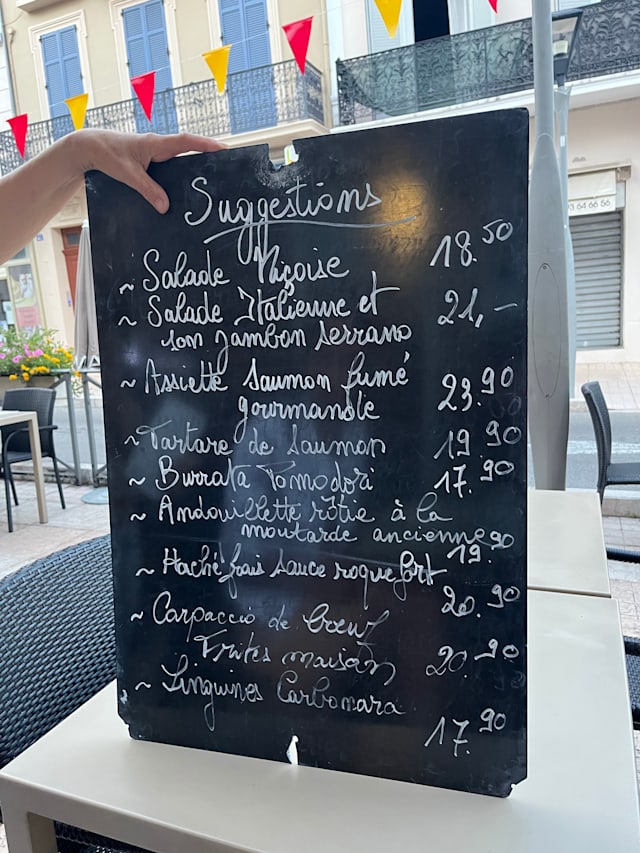 Suggestions
~ Salade Niçoise 18.50
~ Salade Italienne et 21,-
son jambon serrano
~ Assiette saumon fumé
gourmande 23.90
~ Tartare de saumon 19.90
~ Burrata Tomodori 17.90
~ Andouillette rôtie à la
moutarde ancienne 19.90
~ Haché frais sauce roquefort
20.90
~ Carpaccio de boeuf
Frites maison 20.90
~ Linguines Carbonara
17.90
93 64 66 56